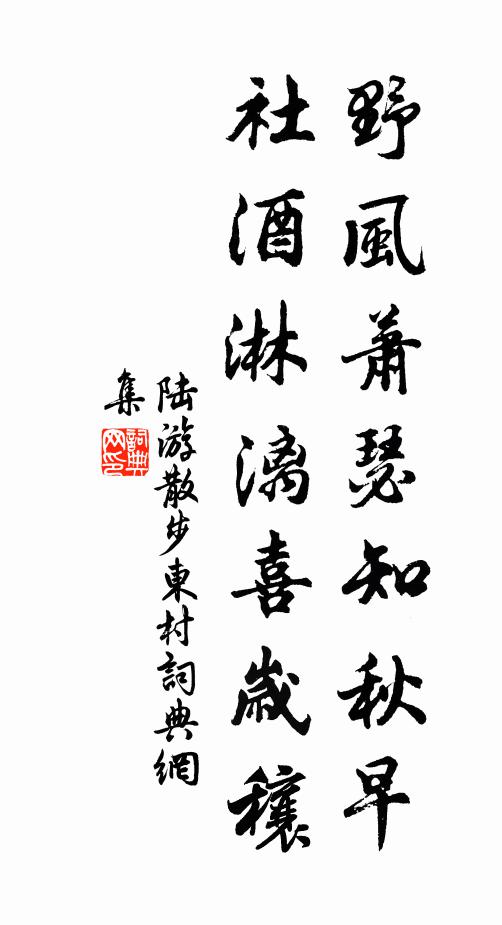 野風蕭瑟知秋早
社酒淋漓喜歲穰
陸游散步東村詞典網
集
詞典网印